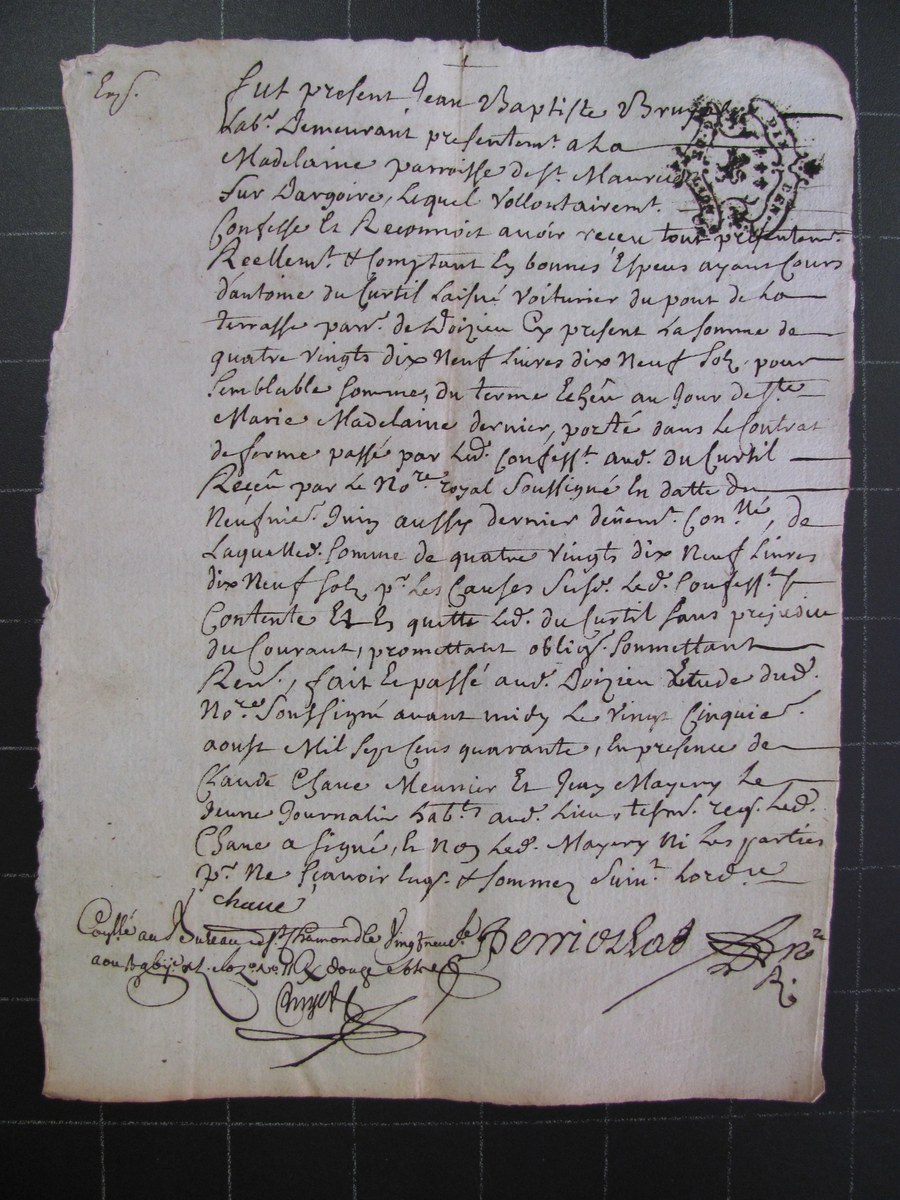 Exp.
fut present Jean Baptiste
Labr. Demeurant presentemt. a La
Madelaine parroisse de st. Maurice
sur Dargoire, Lequel vollontairemt.
Confesse Et Reconnoit avoir receu tout presentemt.
Reellemt. & Comptant En bonnes Especes ayant Cours
d'antoine du Curtil Laisné voiturier du pont de La
terrasse parr. de Doizieu Ex present La somme de
quatre vingts dix Neuf Livres dix Neuf solz pour
semblable somme, du terme Echeû au Jour de ste
Marie Madelaine dernier, porté dans Le Contrat
de ferme passé par Led. Confesst. aud. du Curtil
Reçeû par Le Nore. royal soussigné En datte du
Neufvier. Juin aussy dernier dûemt. Conllé, de
Laquelled. somme de quatre vingts dix Neuf Livres
dix Neuf solz pr. Les Causes susd. Led. Confesst. se
Contente Et En quitte Led. du Curtil sans prejudice
du Courant, promettant oblig. soumettant
Ren., fait Et passé aud. Doizieu Etude dud.
Nore. soussigné avant midy Le vingt Cinquie.
aoust Mil sept Cens quarante, En presence de
Claude Chave Meunier Et Jean Mayery Le
Jeune Journalier habts. aud. Lieu, tesm. req. Led.
Chave a signé, Et Non Led. Mayery Ni Les parties
pr. Ne sçavoir Enq. & sommez suivt. Lord.ce
Chave
Conllé au Bureau de st. Chamond le vingt neuf
aoust